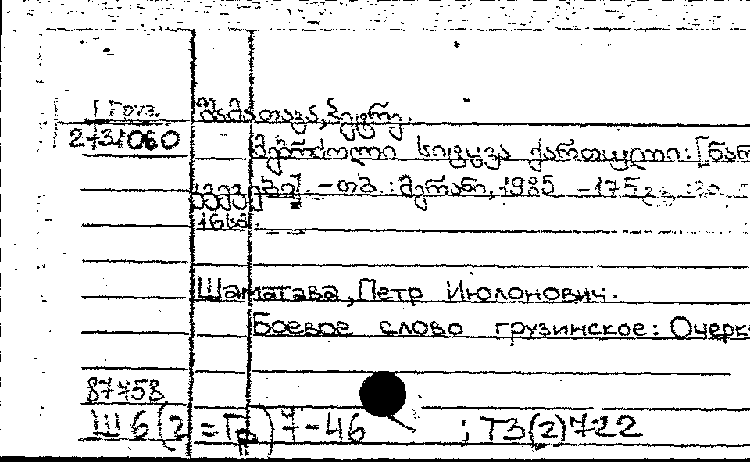 1 Груз.
შამათავა, პეტრე.
2-31060
მებრძოლი სიტყვა ქართული: [ნარ
კვევები]. - თბ.: მერანი, 1985 - 175
16სმ.
Шаматава, Петр Июлонович.
Боевое слово грузинское: Очерк
87758
Ш6(2=Гр)7-46 ; Т3(2)722